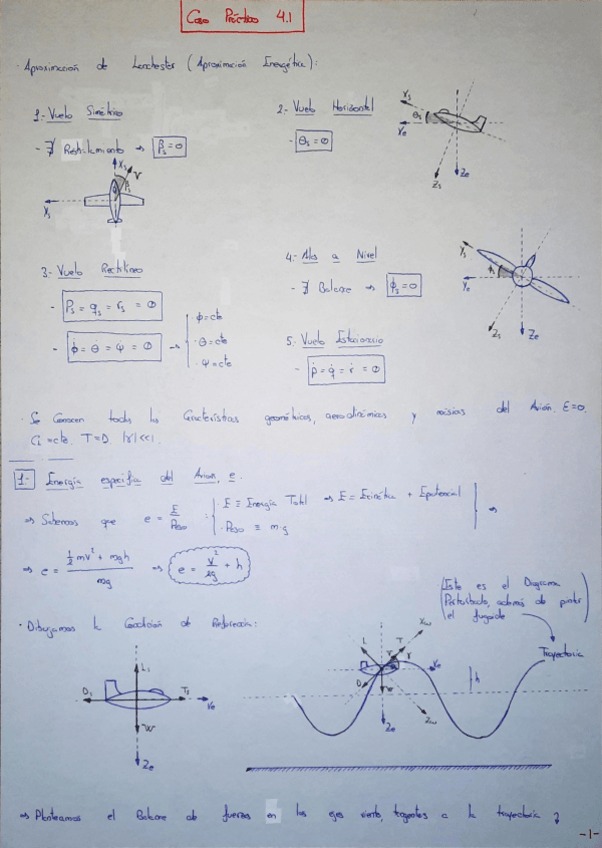 Caso Práctico 4.1
· Aproximación de Lanchester (Aproximación Energética):
1.- Vuelo Simétrico
- ∄ Resbalamiento ⇒ βs = 0
Xs
βs
V
Ys
2.- Vuelo Horizontal
- θs = 0
Xs
θs
Xe
Zs
Ze
3.- Vuelo Rectilíneo
- Ps = qs = rs = 0
- φ̇ = θ̇ = ψ̇ = 0 →
· φ = cte
· θ = cte
· ψ = cte
4.- Alas a Nivel
- ∄ Balance ⇒ φs = 0
Ys
φs
Ye
Zs
Ze
5.- Vuelo Estacionario
- ṗ = q̇ = ṙ = 0
· Se Conocen todas las Características geométricas, aerodinámicas y másicas del Avión. E=0.
CL = cte. T=D. |γ|<<1.
1.- Energía específica del Avión, e.
⇒ Sabemos que e = E/Peso : · E ≡ Energía Total ⇒ E = Ecinética + Epotencial ⇒
· Peso ≡ m·g
⇒ e = (½mV² + mgh)/mg ⇒ e = V²/2g + h
Este es el Diagrama
Perturbado, además de pintar
el fugoide
· Dibujamos la Condición de Referencia:
Trayectoria
L1
D1
T1
Xe
W
Ze
L
T
Xw
V
γ
Xe
D
W
Zw
Ze
h
⇒ Planteamos el Balance de fuerzas en los ejes viento, tangentes a la trayectoria
-1-